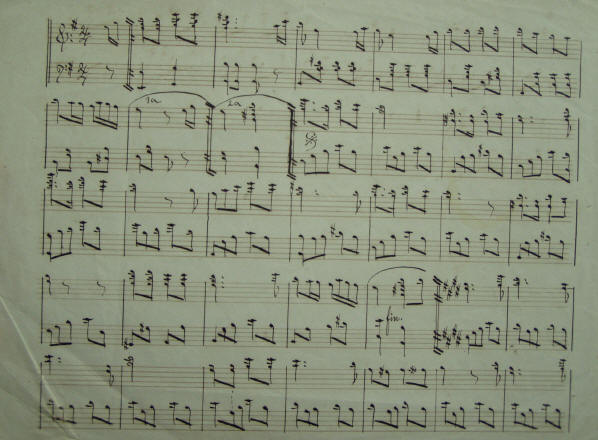 1a 2a
fin.